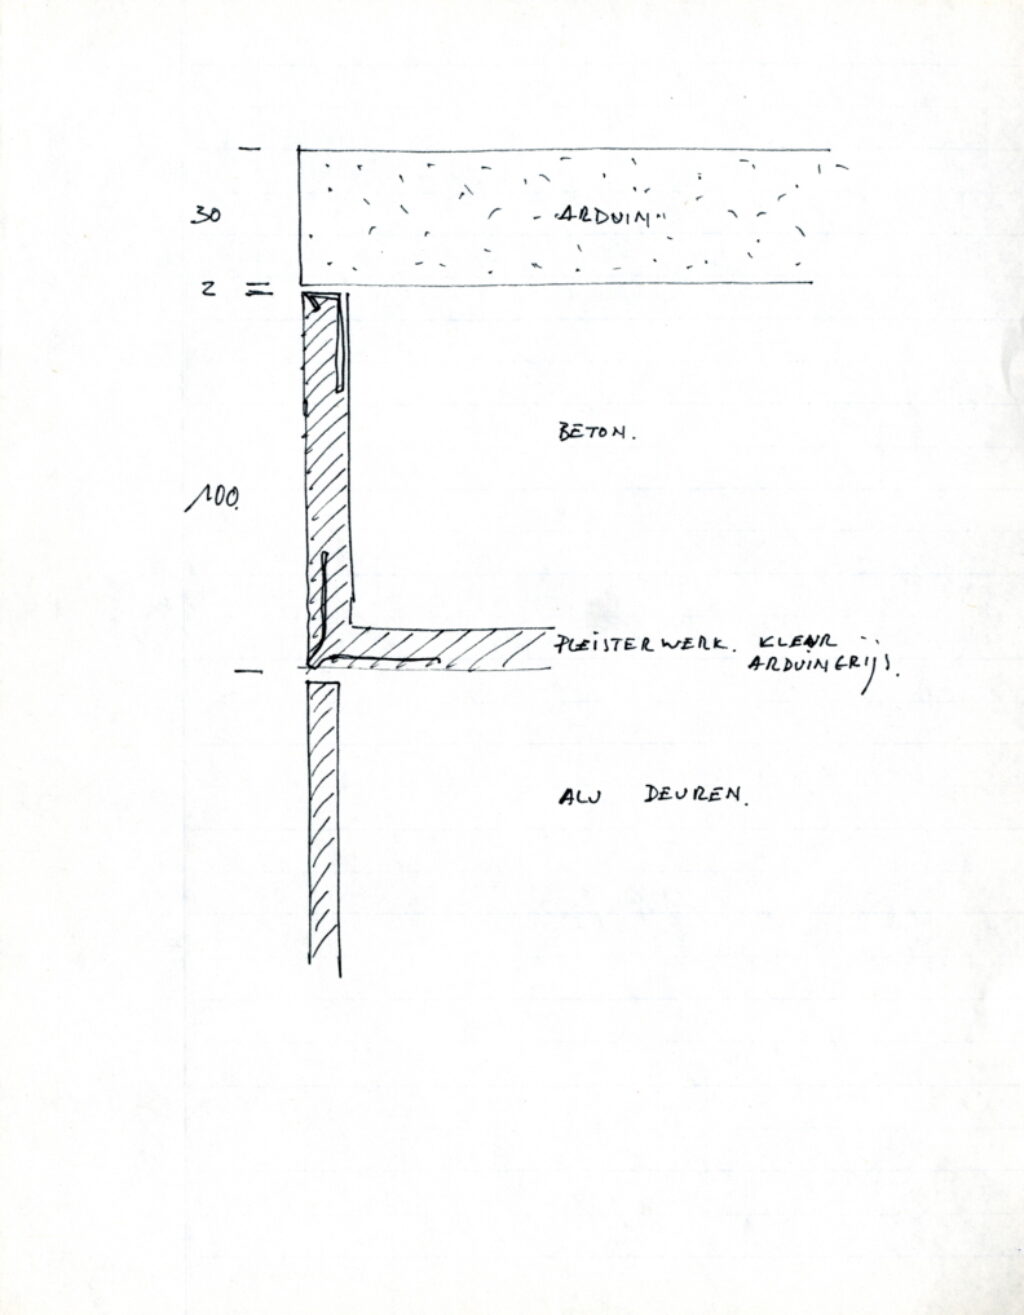 30
ARDUIN
2
BETON.
100.
PLEISTERWERK. KLEUR
ARDUINGRIJS.
ALU DEUREN.